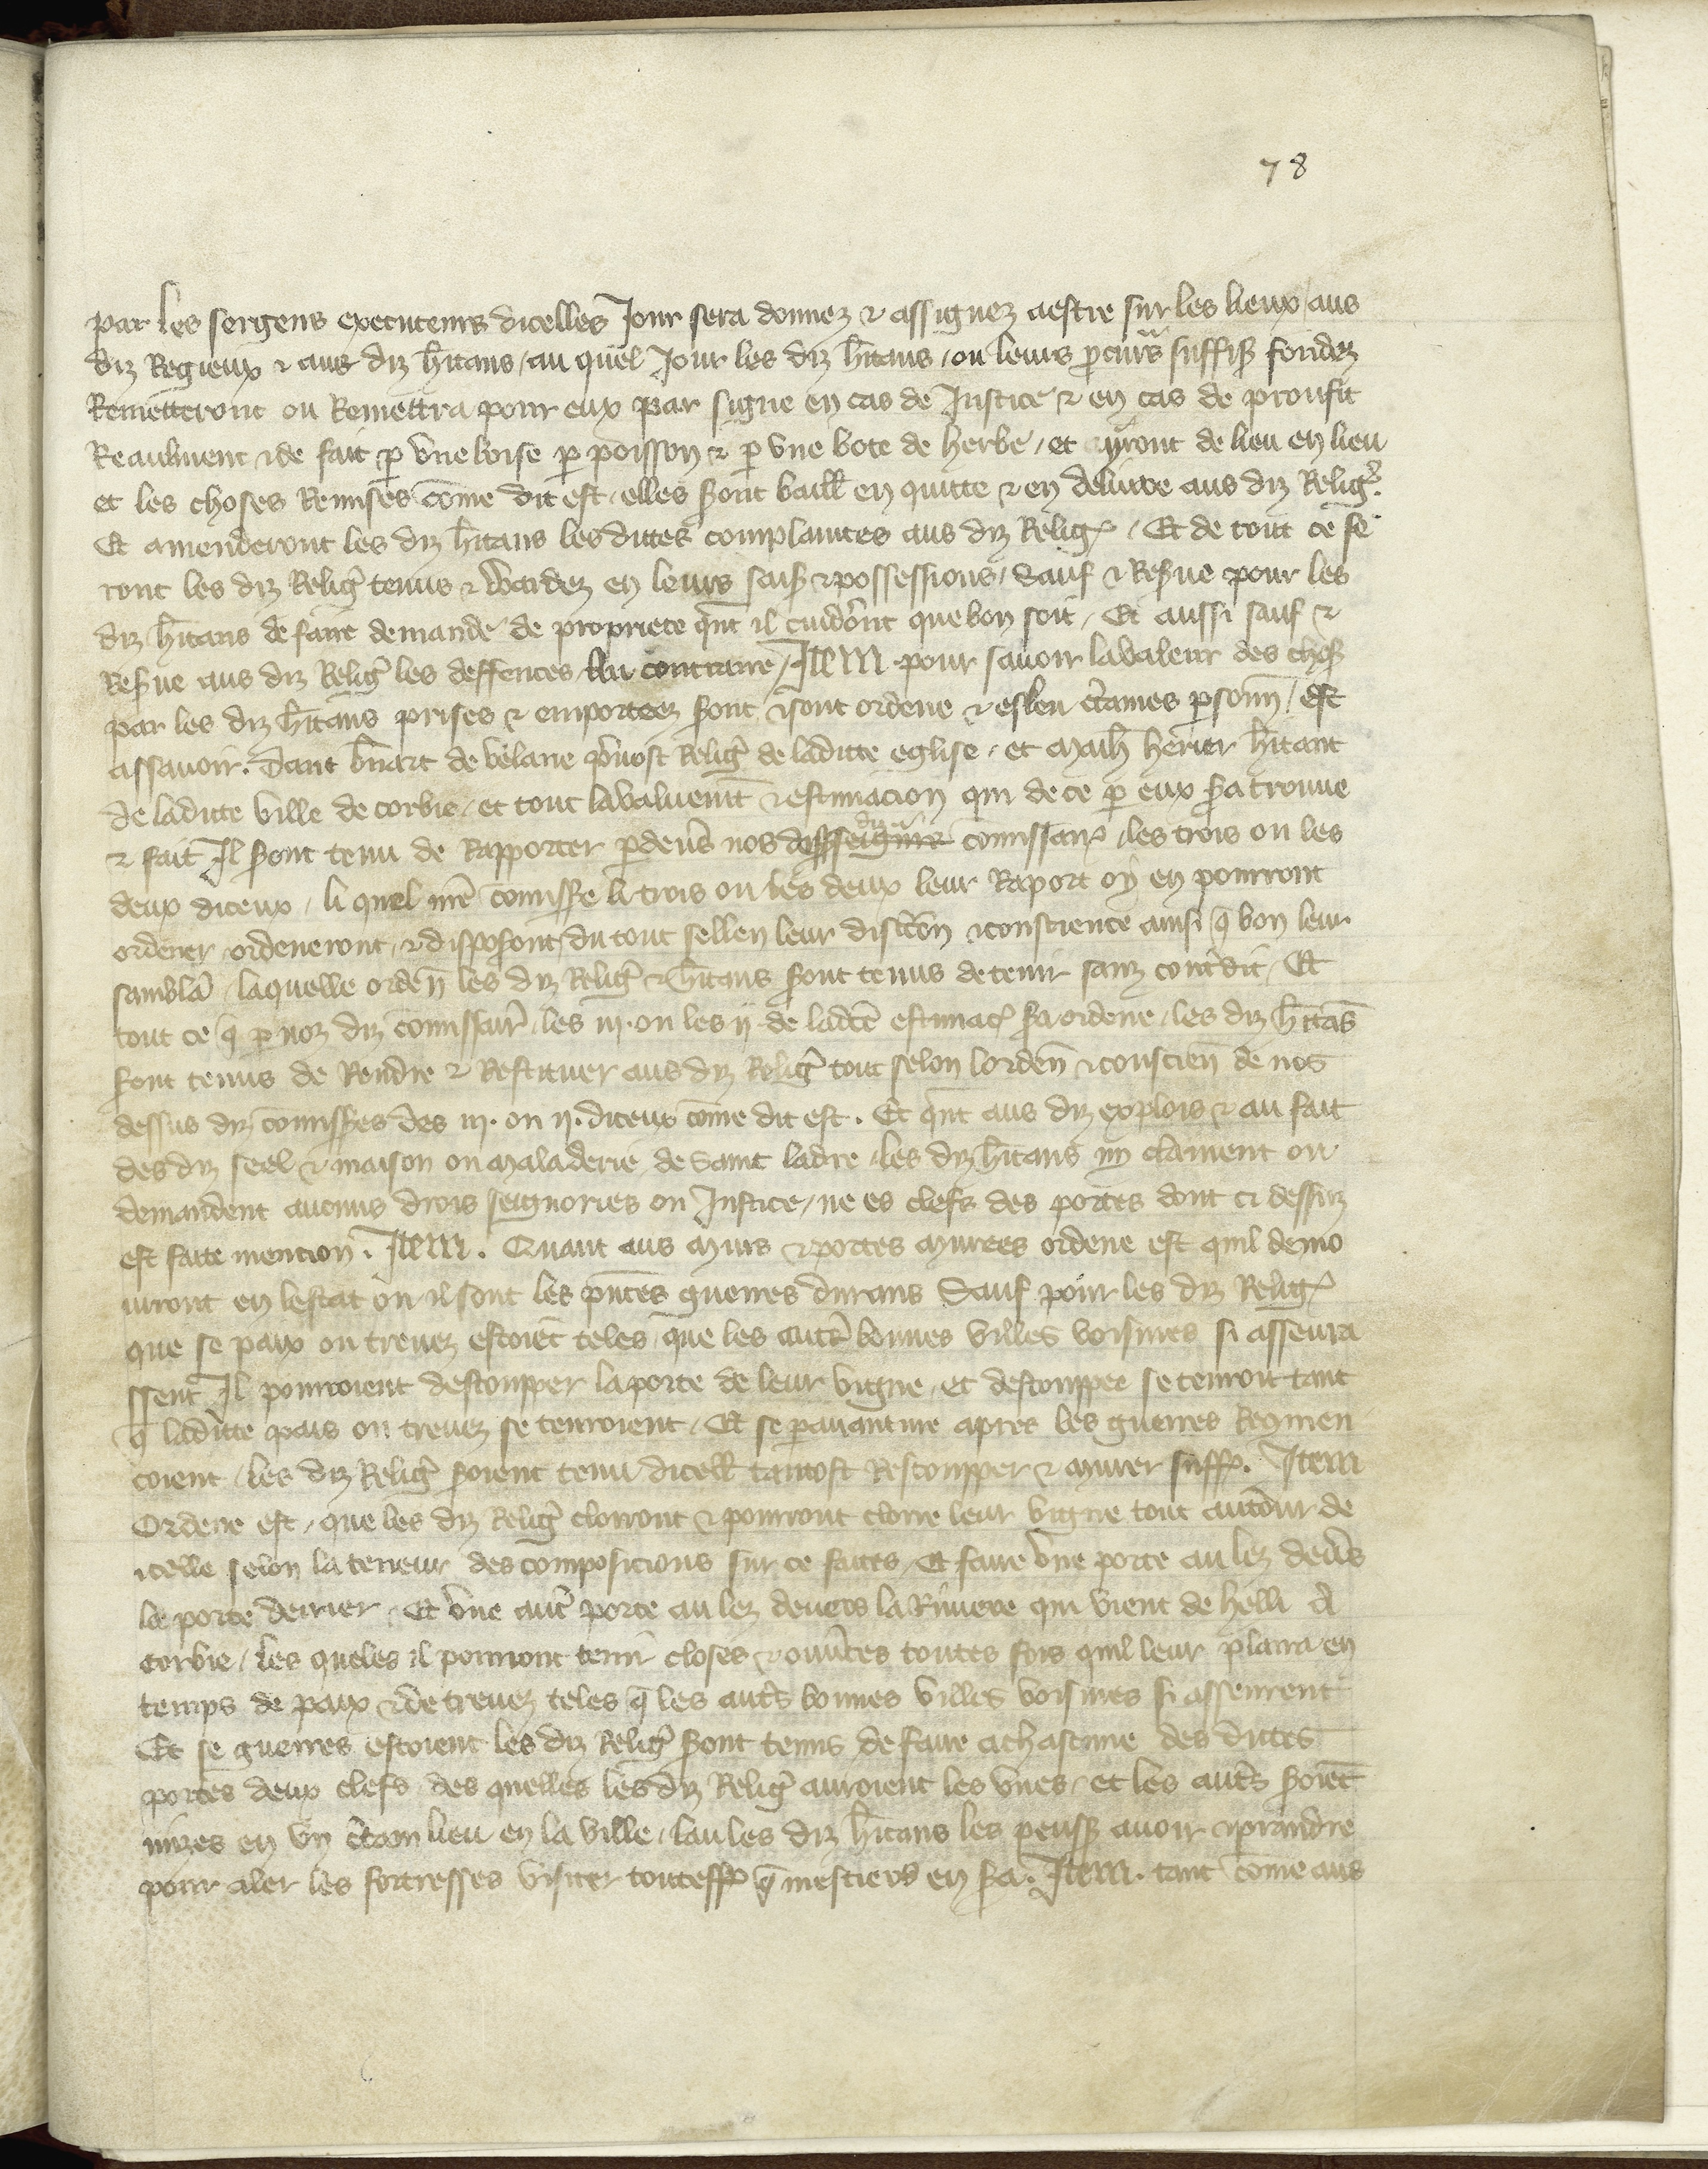 78
par les sergens executeurs dicelles Jour sera donnez & assignez aestre sur les lieux / aus
diz Regieux & aus diz hītans / au quel Jour les diz hītans / ou leurs ꝓcurs̄ suffiss fondez
Remetteront ou Remettra pour eux par signe en cas de Justice & en cas de proufit
Reaulment & de fait ꝑ vne boise ꝑ poisson & ꝑ vne bote de herbe / et yront de lieu en lieu
et les choses Remises cōme dit est / elles sont baill en quitte & en deliure aus diz Relig̾.
Et amenderont les diz hītans les dittes complaintes aus diz Relig̾ / Et de tout ce se
ront les diz Relig̾ tenus & Wardez en leurs seiss & possessions / Sauf & Resue pour les
diz hītans de faire demande de propriete qn̄t il cuidrōnt que bon soit / Et aussi sauf &
Resue aus diz Relig̾ les deffences Au contraire / Item pour sauoir la valeur des chos
par les diz hītans prises & emportees sont & sont ordene & esleu c̾taines ꝑsonn̄ / est
assauoir. Dant bn̄art de velane p̾uost Relig̾ de laditte eglise / et Maih̄ herier hītant
de laditte ville de corbie / et tout la valuem̄t & estimacion qui de ce ꝑ eux sera trouue
& fait Il sont tenu de Rapporter ꝑdeu̾s nos diz com̄issair̾ / les trois ou les
deux diceux / li quel nr̄e com̄isse li trois ou les deux leur Raport oy en pourront
ordener ordeneront & disposront du tout sellen leur discc̄on & conscience ainsi q̄ bon leur
samblā / laquelle orden̄ les diz Relig̾ & hītans sont tenus de tenir sanz cont̾dit / Et
tout ce q̄ ꝑ noz diz com̄issair̾ / les iij. ou les ij de ladc̄e estimac̾ sera ordene / les diz hītās
sont tenus de Rendre & Restituer aus diz Relig̾ tout selon lorden̄ & conscien̄ de nos
dessus diz com̄isses des iij. ou ij. diceux cōme dit est. Et qn̄t aus diz explois & au fait
des diz seel & maison ou maladerie de Saint ladre / les diz hītans ny clament ou
demandent aucuns drois seignories ou Justice / ne es clefs des portes dont ci dessuz
est faite mencion. Item. Quant aus Murs & portes Murees ordene est quil demo
uront en lestat ou il sont les pn̄tes guerres durans Sauf pour les diz Relig̾
que se paix ou treuez estoiēt teles / que les autr̾ bonnes villes voisines si asseura
ssent Il pourroient destouper laporte de leur vigne / et destoupee se tenroit tant
q̄ laditte pais ou treuez se tenroient / Et se ꝑauanture apres les guerres Reqmen
coient / les diz Relig̾ seroient tenu dicell tantost Restoupper & Murer suff. Item
Ordene est / que les diz Relig̾ clorront & pourront clorre leur vigne tout autour de
icelle selon la teneur des composicions sur ce faites / Et faire vne porte au lez deu̾s
la porte derrier / Et vne aut̾ porte au lez deuers la Riuiere qui vient de helli A
Corbie / les queles il pourront tenir closes & ouu̾tes toutes fois quil leur plaira en
temps de paix & de treuez teles q̄ les aut̾s bonnes villes voisines si asseurent
Et se guerres estoient les diz Relig̾ sont tenus de faire achascune des dittes
portes deux clefs / des quelles les diz Relig̾ auroient les vnes / et les aut̾s seroiēt
mizes en vn c̾tain lieu en la ville / lau les diz hītans les peuss auoir & prandre
pour aler les fortresses visiter touteff q̄ mestiers en sera. Item. tant cōme aus